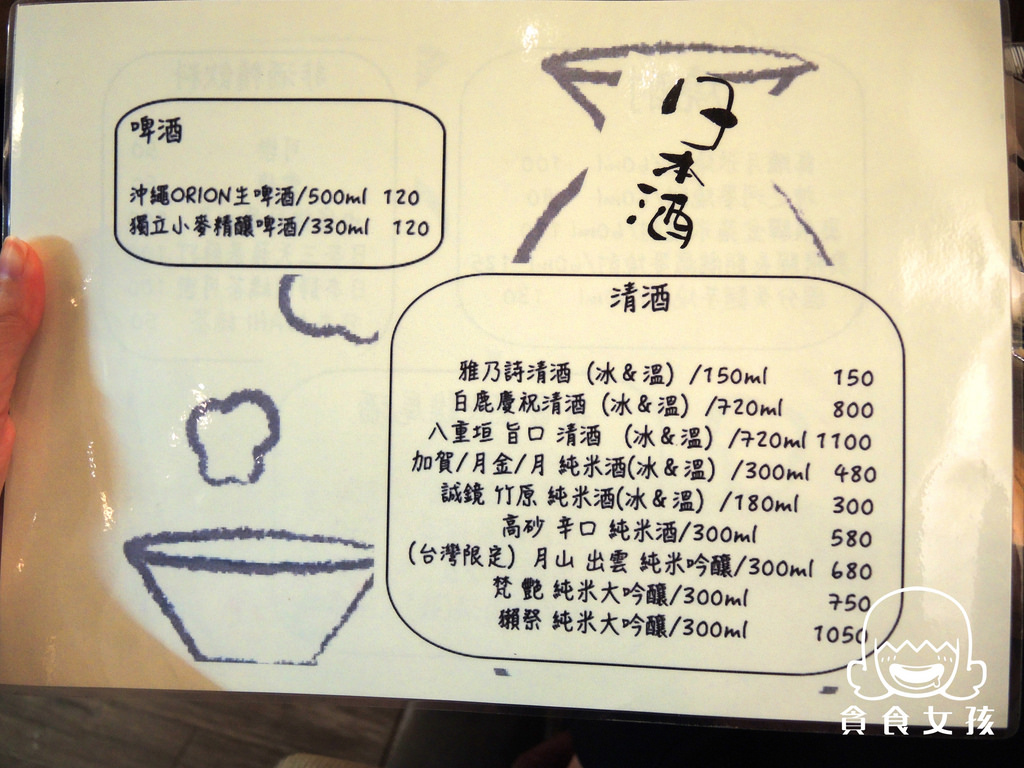 啤酒
沖繩ORION生啤酒/500ml 120
獨立小麥精釀啤酒/330ml 120
日本酒
清酒
雅乃詩清酒 (冰&溫) /150ml 150
白鹿慶祝清酒 (冰&溫) /720ml 800
八重垣 旨口 清酒 (冰&溫) /720ml 1100
加賀/月金/月 純米酒(冰&溫) /300ml 480
誠鏡 竹原 純米酒(冰&溫) /180ml 300
高砂 辛口 純米酒/300ml 580
(台灣限定) 月山 出雲 純米吟釀/300ml 680
梵 艷 純米大吟釀/300ml 750
獺祭 純米大吟釀/300ml 1050
貪食女孩